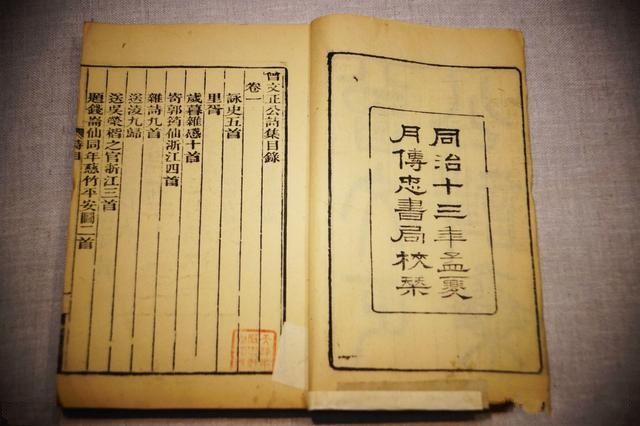 同治十三年孟夏
月傳忠書局校栞
曾文正公詩集目錄
卷一
詠史五首
里胥
歲暮雜感十首
寄郭筠仙浙江四首
雜詩九首
送凌九歸
送吳榮楷之官浙江三首
題錢崙仙同年慈竹平安圖二首
詩目